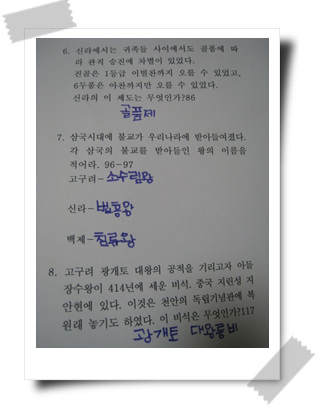 6. 신라에서는 귀족들 사이에서도 골품에 따
라 관직 승진에 차별이 있었다.
진골은 1등급 이벌찬까지 오를 수 있었고,
6두품은 아찬까지만 오를 수 있었다.
신라의 이 제도는 무엇인가?86
골품제
7. 삼국시대에 불교가 우리나라에 받아들여졌다.
각 삼국의 불교를 받아들인 왕의 이름을
적어라. 96-97
고구려-소수림왕
신라-법흥왕
백제-침류왕
8. 고구려 광개토 대왕의 공적을 기리고자 아들
장수왕이 414년에 세운 비석. 중국 지린성 지
안현에 있다. 이것은 천안의 독립기념관에 복
원해 놓기도 하였다. 이 비석은 무엇인가?117
광개토 대왕릉비